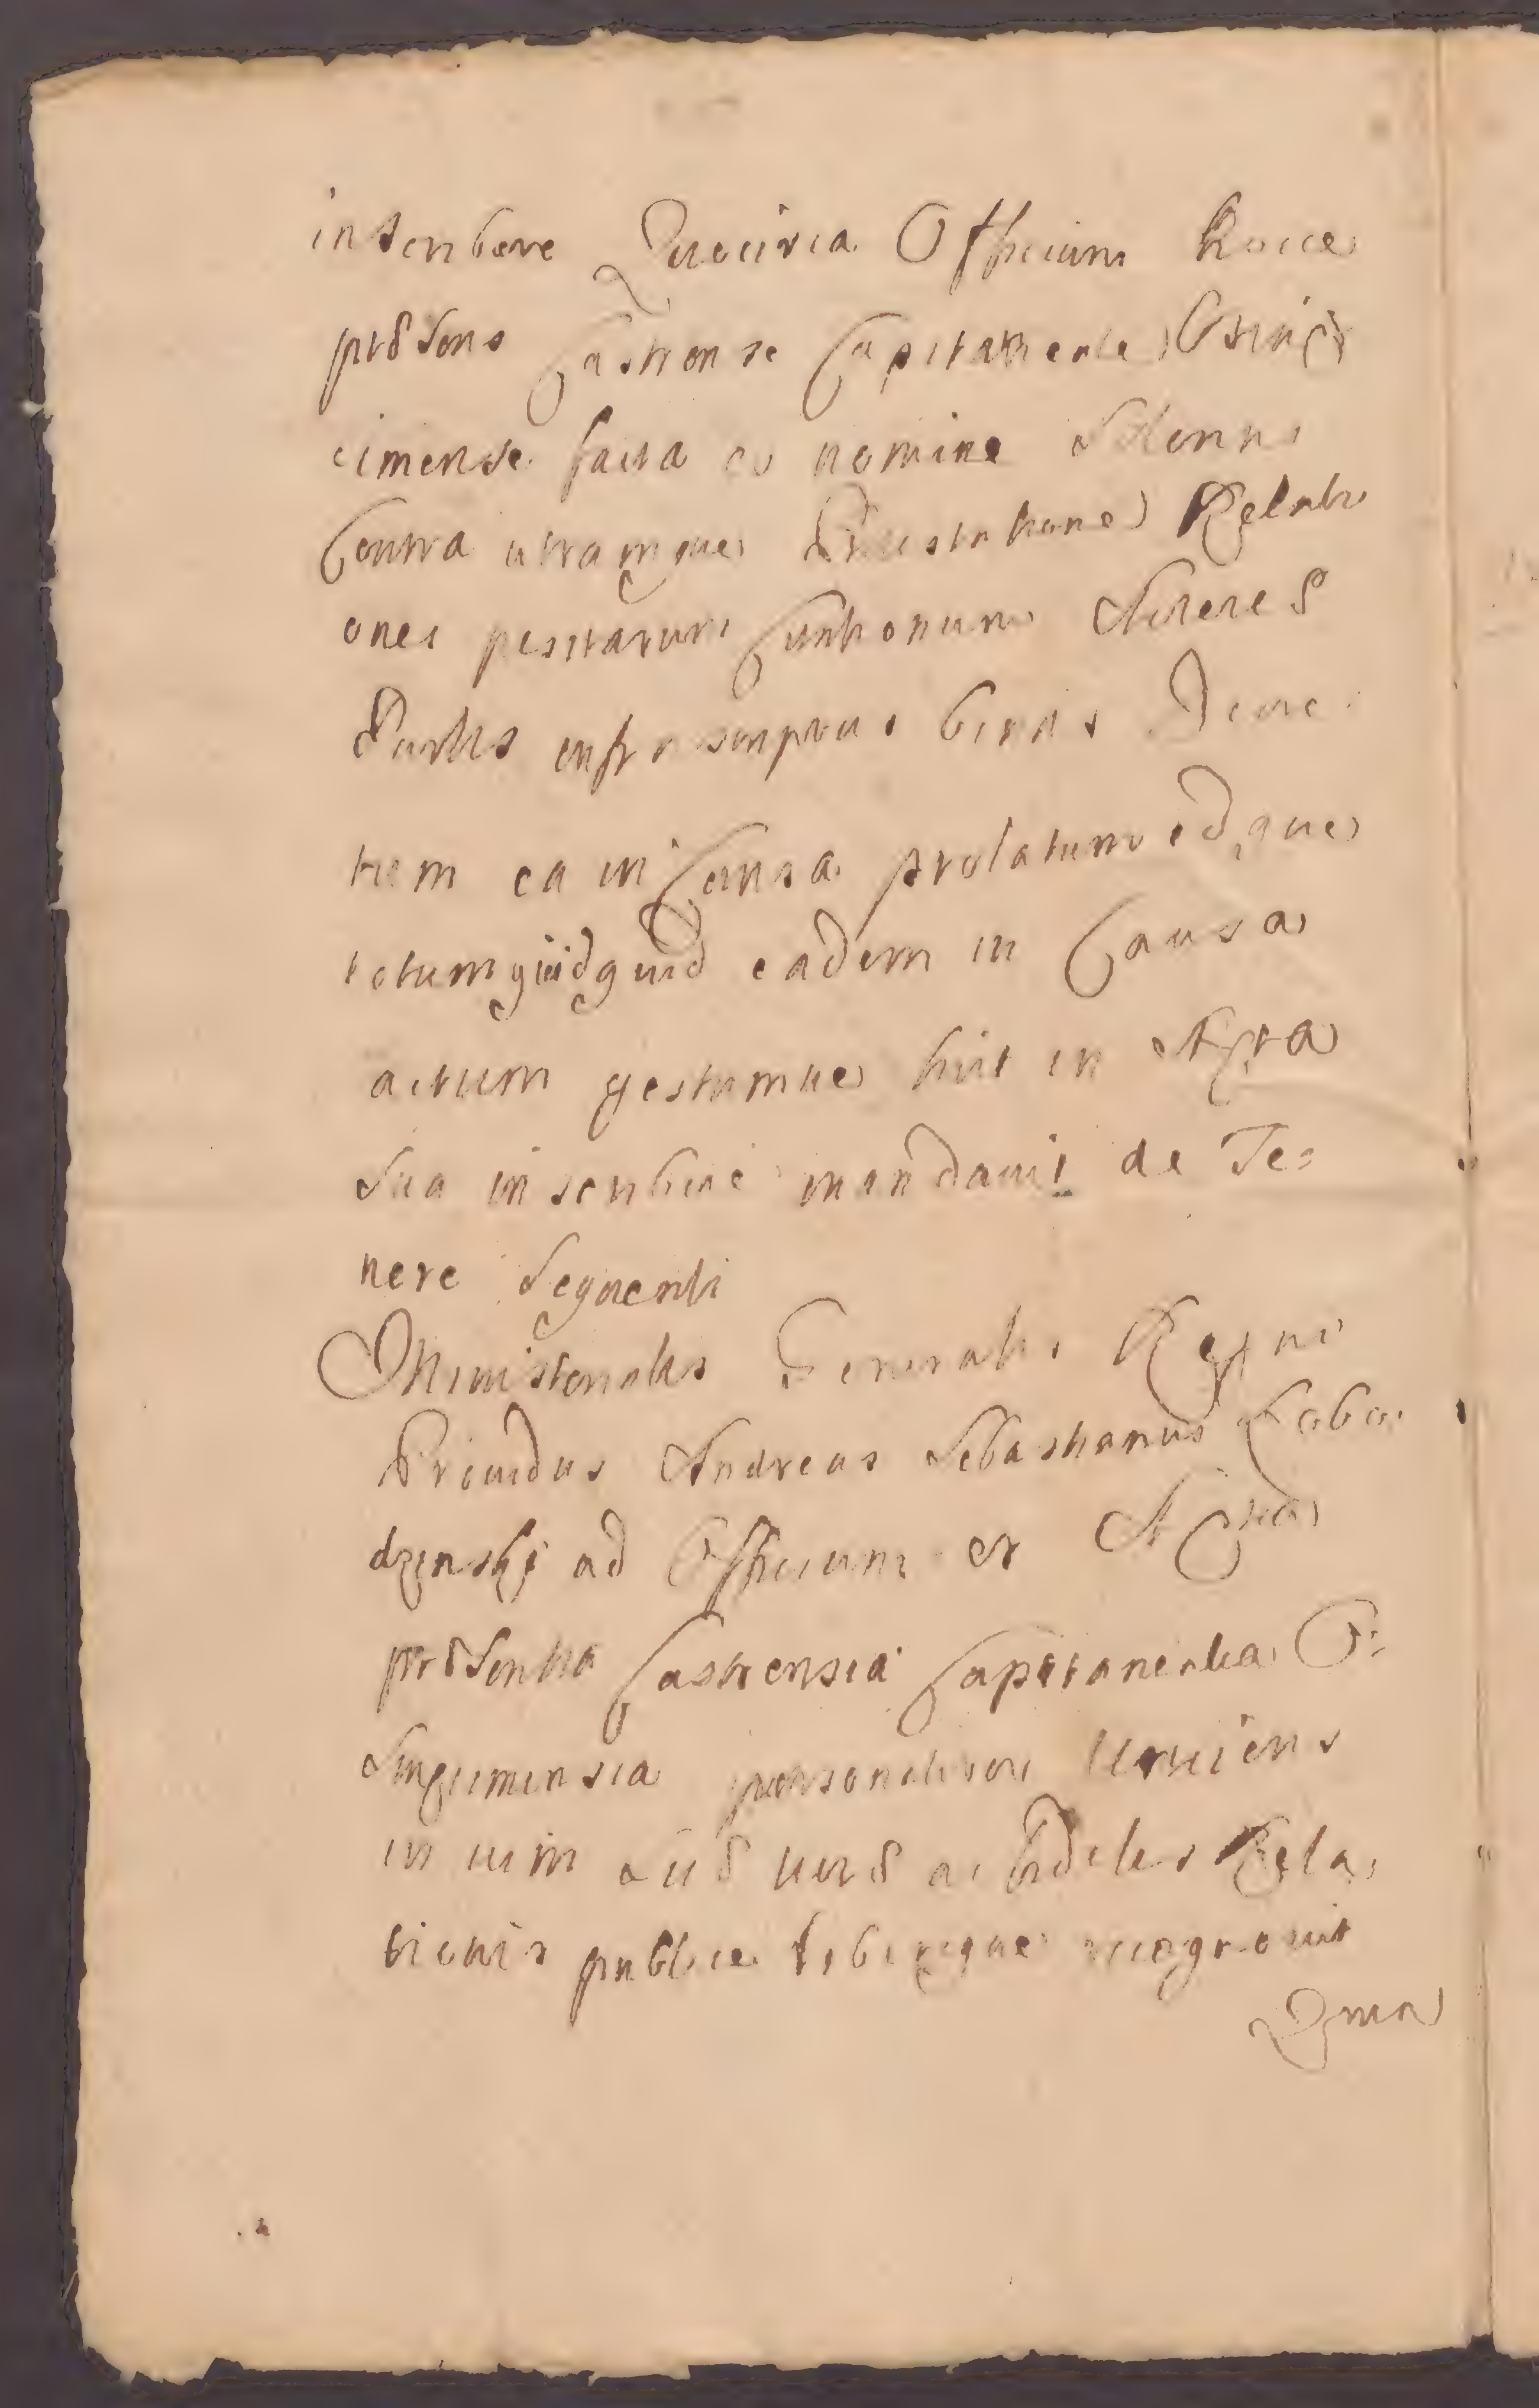 inscribere Quocirca Officium hocce
præsens Castrense Capitaneale Osing
cimense facta eo nomine Solenni
Contra utramque Protestatione Relati
ones positarum Citationum Acterere
Partis infrascriptas binas Decre
tum ea in Causa prolatum idque
totum quidquid eadem in Causa
actum gestumue fuit in Acta
Sua inscribere mandauit de Te=
nere Sequenti
Ministerialis Generalis Regni
Prouidus Andreas Sebastianus Łobo
dzinskj ad Officium et Acta
præsentia Castrensia Capitanealia O=
singcimensia personaliter Veniens
in uim suæ ueræ ac fidelis Rela
tionis publice libereque recognouit
Quia